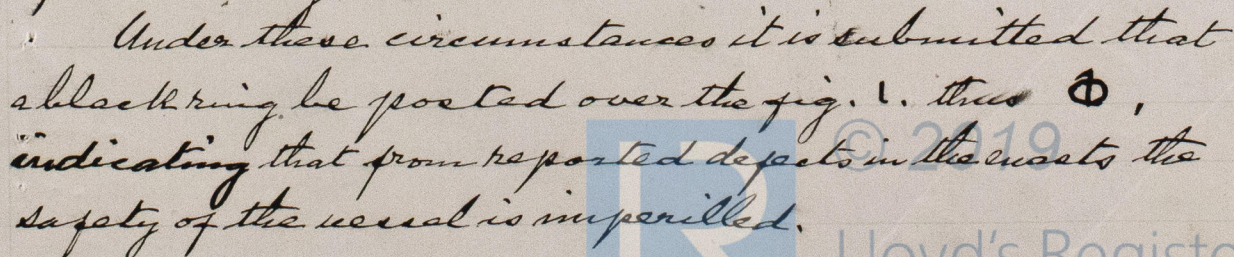 Under these circumstances it is submitted that
a black ring be posted over the fig. 1. thus Ⓘ,
indicating that from reported defects in the the
safety of the vessel is imperilled.
© 2019
Lloyd's Registe